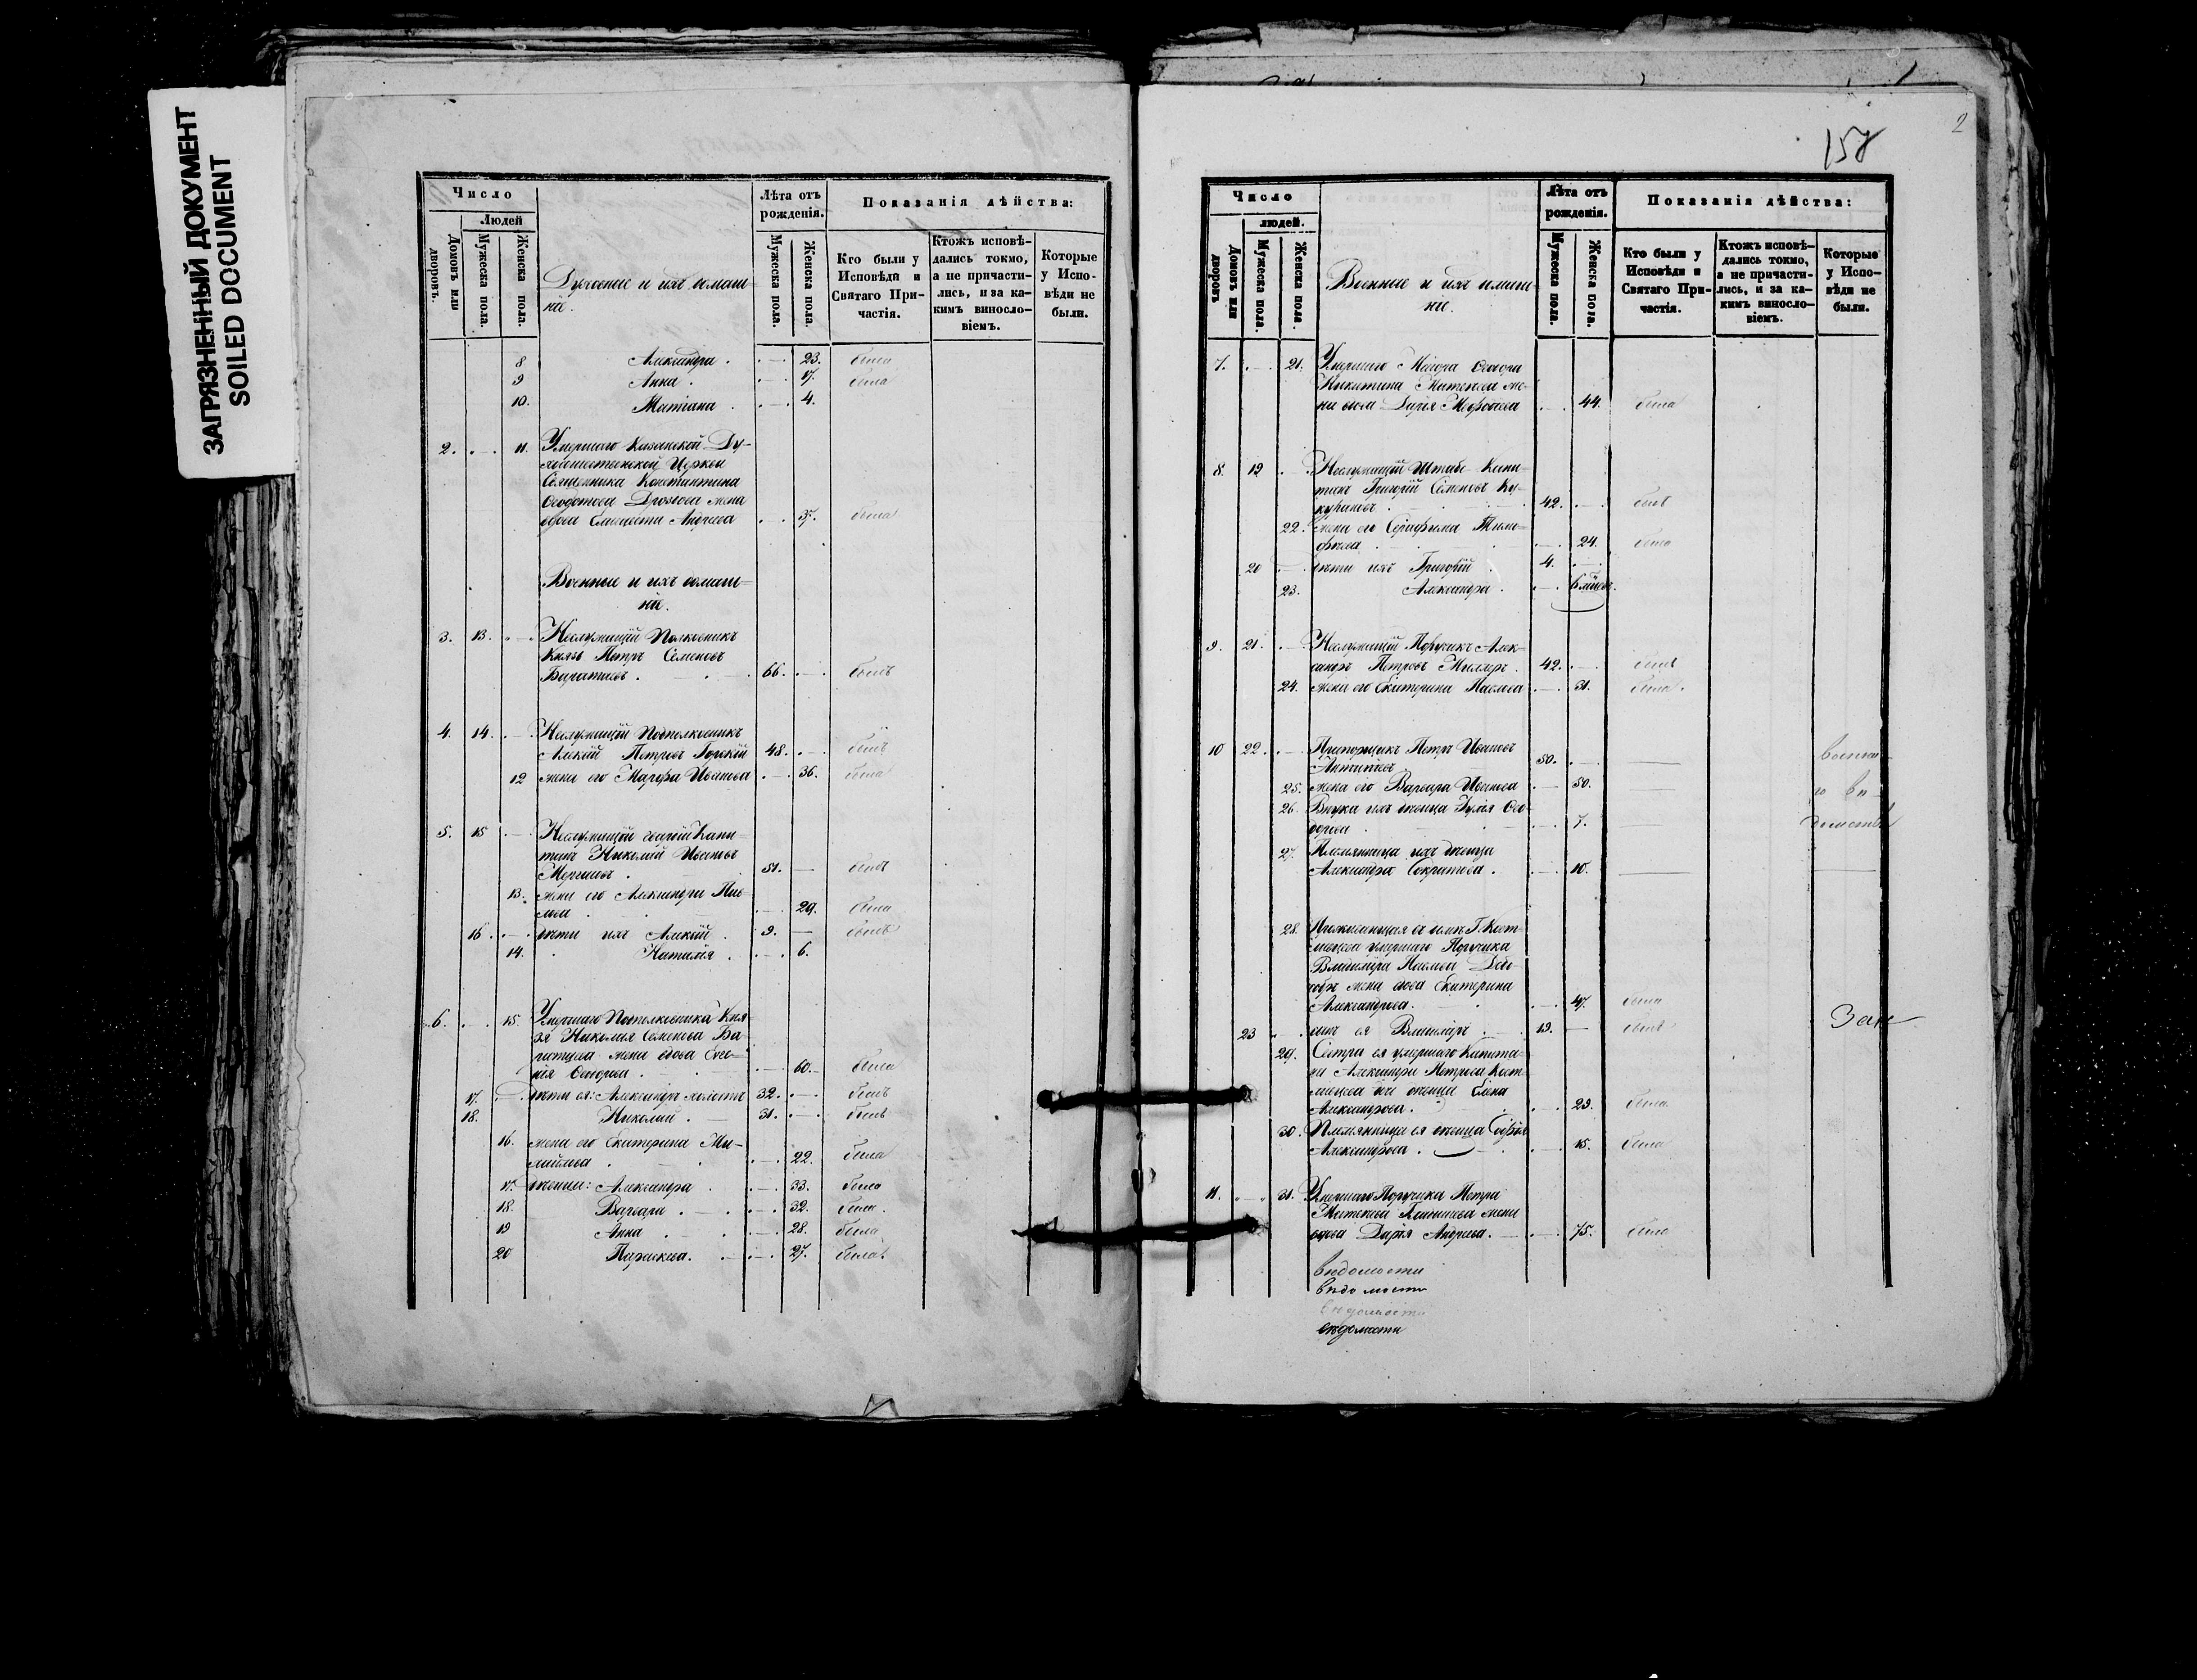 ЗАГРЯЗНЕННЫЙ ДОКУМЕНТ
SOILED DOCUMENT
Число
Людей
Домовъ или дворовъ.
Мужеска пола.
Женска пола.
Духовные и ихъ домаш-
ніе.
Лѣта отъ
рожденія.
Мужеска пола.
Женска пола.
Показанія дѣйства:
Кто были у
Исповѣди и
Святаго При-
частія.
Ктожъ исповѣ-
дались токмо,
а не причасти-
лись, и за ка-
кимъ винсло-
віемъ.
Которые
у Испо-
вѣди не
были.
8 Александра . 23. была
9 Анна . 17. была
10. Татіана . 4.
2. 11. Умершаго Казанской Ду-
Церкви
Священника Константина
жена
вдова Андреева 37. была
Военные и ихъ домаш-
ніе.
3. 13. Неслужащій Полковникъ
Князь Петръ Семеновъ
Баратаевъ . 66. былъ
4. 14. Неслужащій Подполковникъ
Алексій Петровъ 48. былъ
12 жена его Марфа Иванова 36. была
5. 15 Неслужащій Капи-
танъ Николай Ивановъ
51. былъ
13. жена его Александра Пав-
лова 29. была
16. дѣти ихъ Алексій 9. былъ
14. Наталія . 6.
6. 15. Умершаго Подполковника Кня-
зя Николая Семенова Ба-
ратаева жена вдова Евге-
нія Федорова . 60. была
17. дѣти ея: Александръ холостъ 32. былъ
18. Николай . 31. былъ
16. жена его Екатерина Ми-
хайлова . 22. была
17. девицы: Александра 33. была
18. Варвара . 32. была.
19 Анна 28. была
20 Параскева. 27. была.
2
158
Число
людей.
Домовъ или дворовъ
Мужеска пола.
Женска пола.
Военные и ихъ домаш-
ніе.
Лѣта отъ
рожденія.
Мужеска пола.
Женска пола.
Показанія дѣйства:
Кто были у
Исповѣди и
Святаго При-
частія.
Ктожъ исповѣ-
дались токмо,
а не причасти-
лись, и за ка-
кимъ винсло-
віемъ.
Которые
у Испо-
вѣди не
были.
7. 21. Умершаго Маіора Федора
Никитина же-
на вдова Дарія 44. была
8. 19 Неслужащій Штабс-Капи-
танъ Григорій Семеновъ
42. былъ
22. жена его Серафима Тимо-
фѣева 24. была
20 дѣти ихъ Григорій 4.
23. Александра . 6 мѣсяц.
9. 21. Неслужащій Поручикъ Алек-
сандръ Петровъ Миллеръ . 42. былъ
24. жена его Екатерина Павлова 31. была.
10 22. Прапорщикъ Петръ Ивановъ
50.
25. жена его Варвара Иванова 50.
26. Внука ихъ девица Юлія Фео-
дорова 7.
27. Племянница ихъ девица
Александра . 10.
28. умершаго Поручика
Владиміра Павлова
жена вдова Екатерина
Александрова. 47. была
23 сынъ ея Владиміръ 19. былъ
Зап
29. Сестра ея умершаго Капита-
на Александра Петрова
дочь девица Елена
Александрова . 23. была
30. Племянница ея девица Софія
Александрова . 15. была
11. 31. Умершаго Поручика Петра
жена
вдова Дарія Андреева. 75. была
вѣдомости
вѣдомости
вѣдомости
вѣдомости